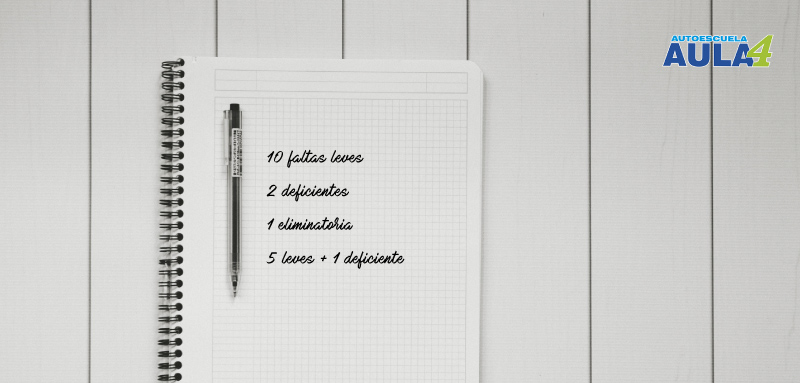 AUTOESCUELA
AULA4
10 faltas leves
2 deficientes
1 eliminatoria
5 leves + 1 deficiente